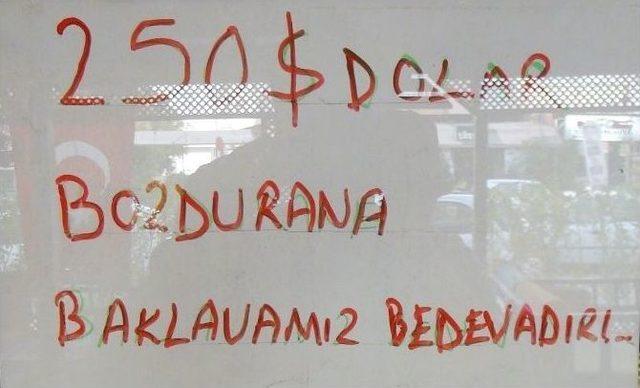 250$ DOLAR
BOZDURANA
BAKLAVAMIZ BEDEVADIR!..